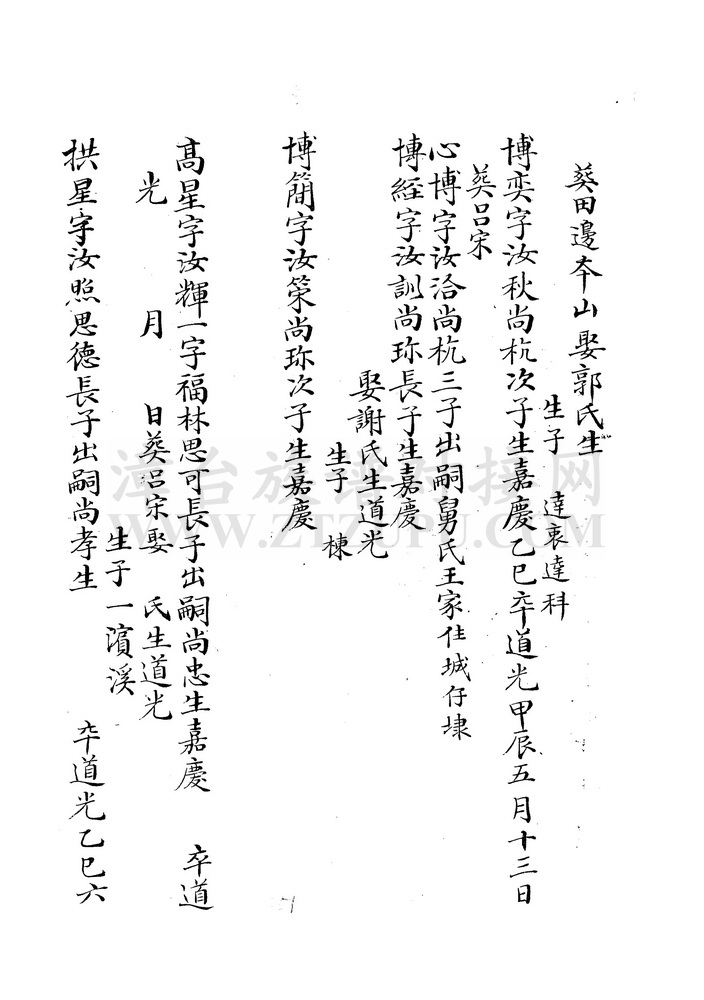 葬田邊夲山娶郭氏生
生子 達衷達科
博奕字汝秋尚杭次子生嘉慶乙巳卒道光甲辰五月十三日
葬吕宋
心博字汝洽尚杭三子出嗣舅氏王家住城仔埭
博經字汝訓尚珎長子生嘉慶
娶謝氏生道光
生子 棟
博簡字汝策尚珎次子生嘉慶
髙星字汝輝一字福林思可長子出嗣尚忠生嘉慶 卒道
光 月 日葬吕宋娶 氏生道光
生子一濱溪
拱星字汝照思德長子出嗣尚孝生 卒道光乙巳六
漳台族谱对接网
WWW.ZTZUPU.COM